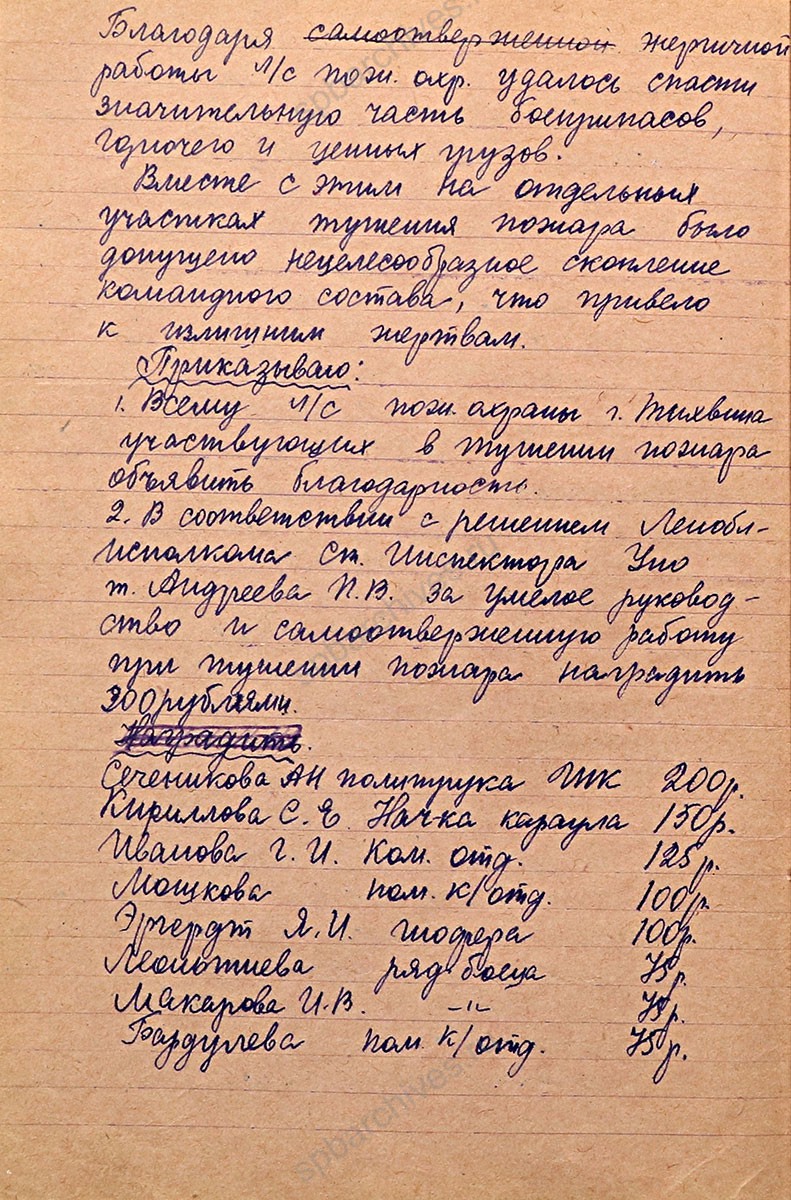 Благодаря самоотверженной энергичной
работы л/с пож. охр. удалось спасти
значительную часть боеприпасов,
горючего и ценных грузов.
Вместе с этим на отдельных
участках тушения пожара было
допущено нецелесообразное скопление
командного состава, что привело
к излишним жертвам.
Приказываю:
1. Всему л/с пож. охраны г. Тихвина
участвующих в тушении пожара
объявить благодарность.
2. В соответствии с решением Ленобл-
исполкома Ст. Инспектора Упо
т. Андреева П.В. за умелое руковод-
ство и самоотверженную работу
при тушении пожара наградить
300 рублями.
Наградить.
Сеченикова АН политрука ГПК 200р.
Кириллова С.Е. Нач-ка караула 150р.
Иванова Г.И. Ком. отд. 125р.
Мошкова пом. к/отд. 100р.
Эргердт Я.И. шофера 100р.
Леонтьева ряд. бойца 75р.
Макарова И.В. -"- 75р.
Бардулева пом. к/отд. 75р.
spbarchives.